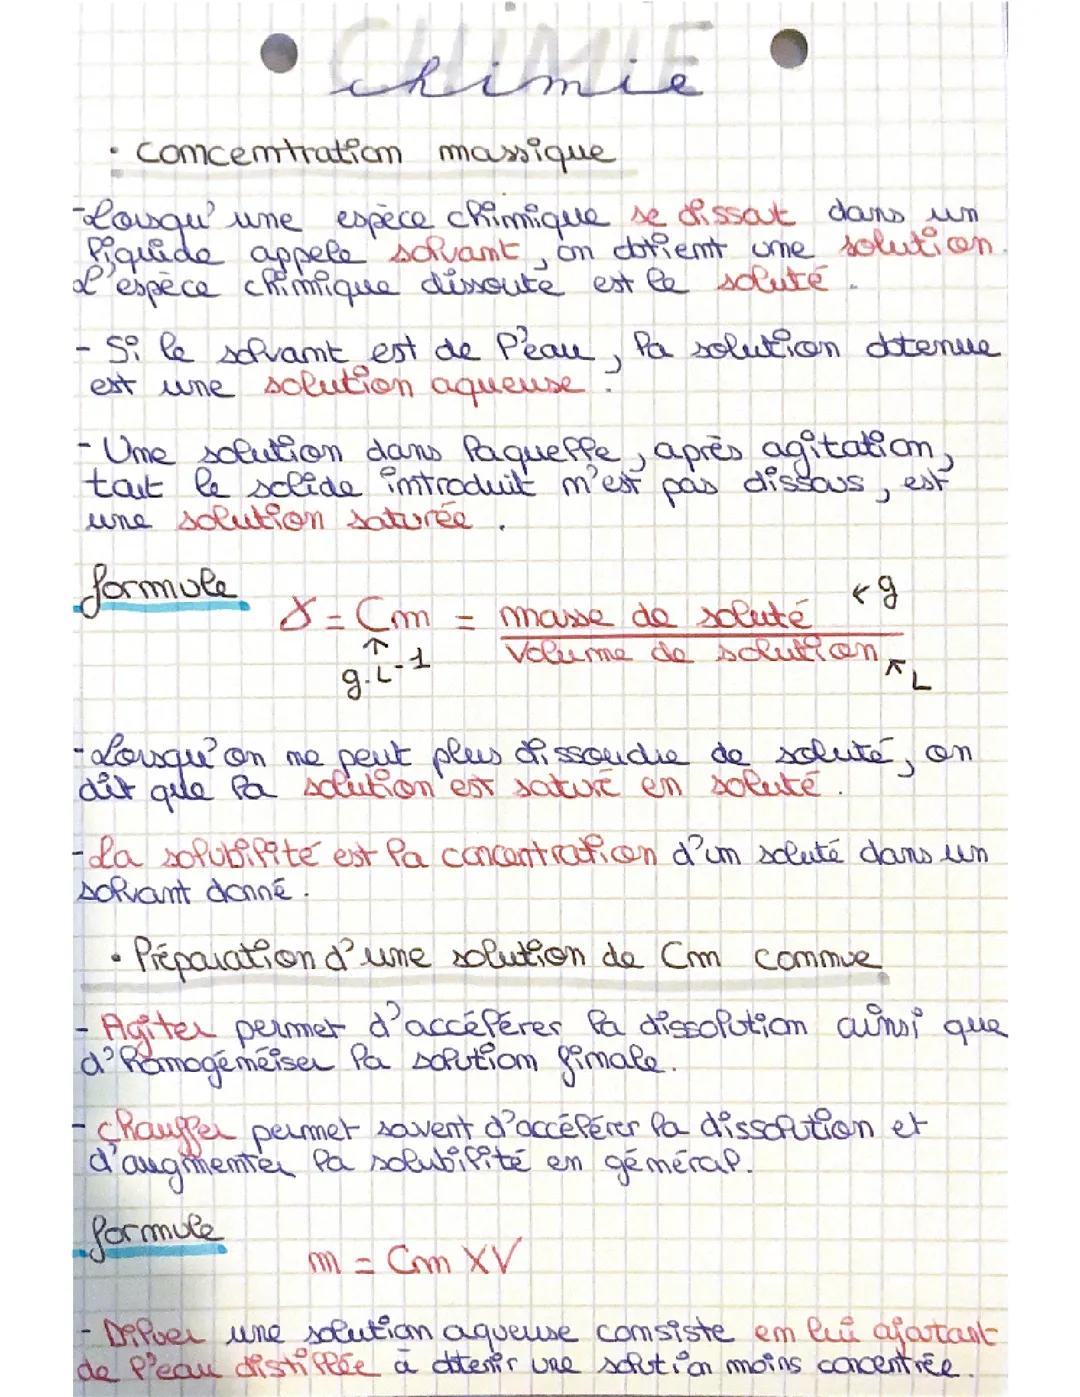 CHIMIE
chimie
• concentration massique
- Lorsqu'une espèce chimique se dissout dans un
liquide appele solvant, on obtient une solution.
L'espèce chimique dissoute est le soluté.
- Si le solvant est de l'eau, la solution obtenue
est une solution aqueuse.
- Une solution dans laquelle, après agitation,
tout le solide introduit n'est pas dissous, est
une solution saturée.
formule
γ = Cm = masse de soluté ← g
Volume de solution ↖ L
↑
g.L-1
- Lorsqu'on ne peut plus dissoudre de soluté, on
dit que la solution est saturé en soluté.
- La solubilité est la concentration d'un soluté dans un
solvant donné.
• Préparation d'une solution de Cm connue
- Agiter permet d'accélérer la dissolution ainsi que
d'homogénéiser la solution finale.
- chauffer permet souvent d'accélérer la dissolution et
d'augmenter la solubilité en général.
formule
m = Cm x V
- Diluer une solution aqueuse consiste en lui ajoutant
de l'eau distillée à obtenir une solution moins concentrée.